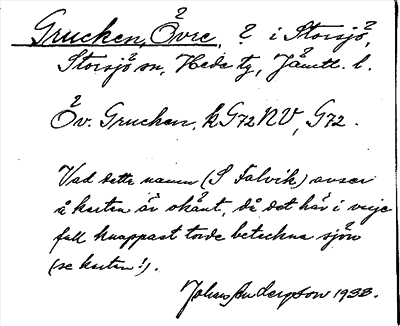 Grucken, Övre, ? i Storsjö,
Storsjö sn, Hede tg, Jämtl. l.
Öv. Grucken, kG72NV, G72.
Vad detta namn (S Falvik) avser
å kartan är okänt, då det här i varje
fall knappast torde beteckna sjön
(se kartan!).
Johans Anderpson 1933.